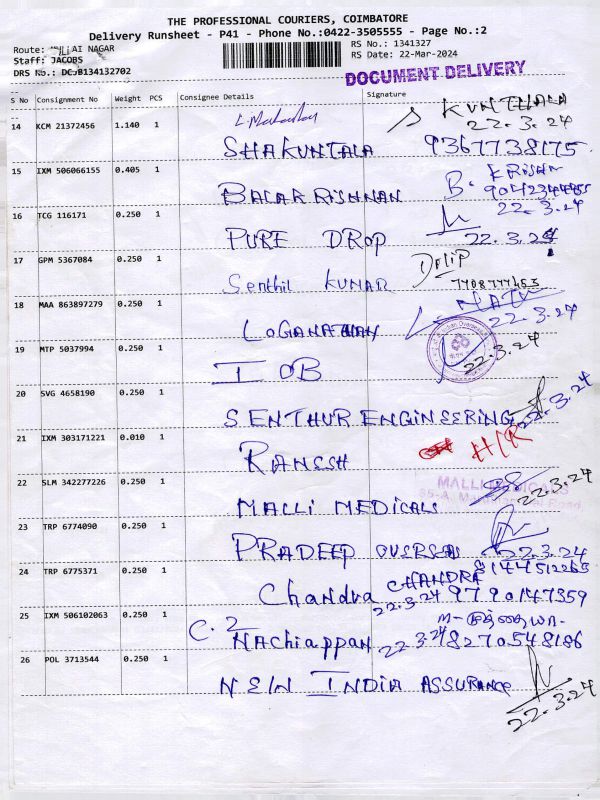 THE PROFESSIONAL COURIERS, COIMBATORE
Delivery Runsheet - P41 - Phone No.:0422-3505555 - Page No.:2
Route: AI NAGAR
RS No.: 1341327
Staff: JACOBS
RS Date: 22-Mar-2024
DRS No.: DCOB134132702
DOCUMENT DELIVERY
S No Consignment No Weight PCS Consignee Details Signature
14 KCM 21372456 1.140 1
S KUNTHALA
22.3.24
SHAKUNTALA 9367738175
15 IXM 506066155 0.405 1
B. KRISHN
BALAKRISHNAN
16 TCG 116171 0.250 1
22.3.24
PURE DROP 22.3.24
17 GPM 5367084 0.250 1
Dilip
Senthil KUMAR
18 MAA 863897279 0.250 1
22.3.24
LOGANATHAN
19 MTP 5037994 0.250 1
22.3.24
IOB
20 SVG 4658190 0.250 1
22.3.24
SENTHUR ENGINEERING
21 IXM 303171221 0.010 1
H/R
RANESH
22 SLM 342277226 0.250 1
MALLI MEDICALS
22.3.24
MALLI MEDICALS
23 TRP 6774090 0.250 1
PRADEEP OVERSEAS 22.3.24
24 TRP 6775371 0.250 1
CHANDRA 8144512265
Chandra 22.3.24 9790147359
25 IXM 506102063 0.250 1
C. 2
Nachiappan 22.3.24 8270548186
26 POL 3713544 0.250 1
NEW INDIA ASSURANCE
22.3.24